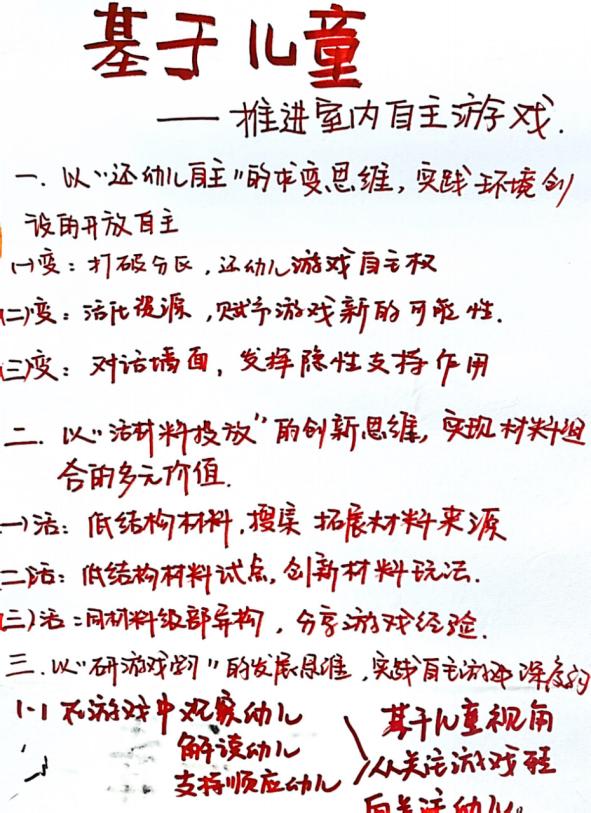 基于儿童
——推进室内自主游戏.
一. 以“还幼儿自主”的求变思维, 实践环境创
设的开放自主
(一)变: 打破分区, 还幼儿游戏自主权
(二)变: 活化资源, 赋予游戏新的可能性.
(三)变: 对话墙面, 发挥隐性支持作用
二. 以“活材料投放”的创新思维, 实现材料组
合的多元价值.
一)活: 低结构材料, 搜集 拓展材料来源
二)活: 低结构材料试点, 创新材料玩法.
三)活: 同材料级部异构, 分享游戏经验.
三. 以“研游戏” 的发展思维, 实践自主游戏深度
在游戏中观察幼儿
解读幼儿
支持顺应幼儿
基于儿童视角
从关注游戏
向关注幼儿。